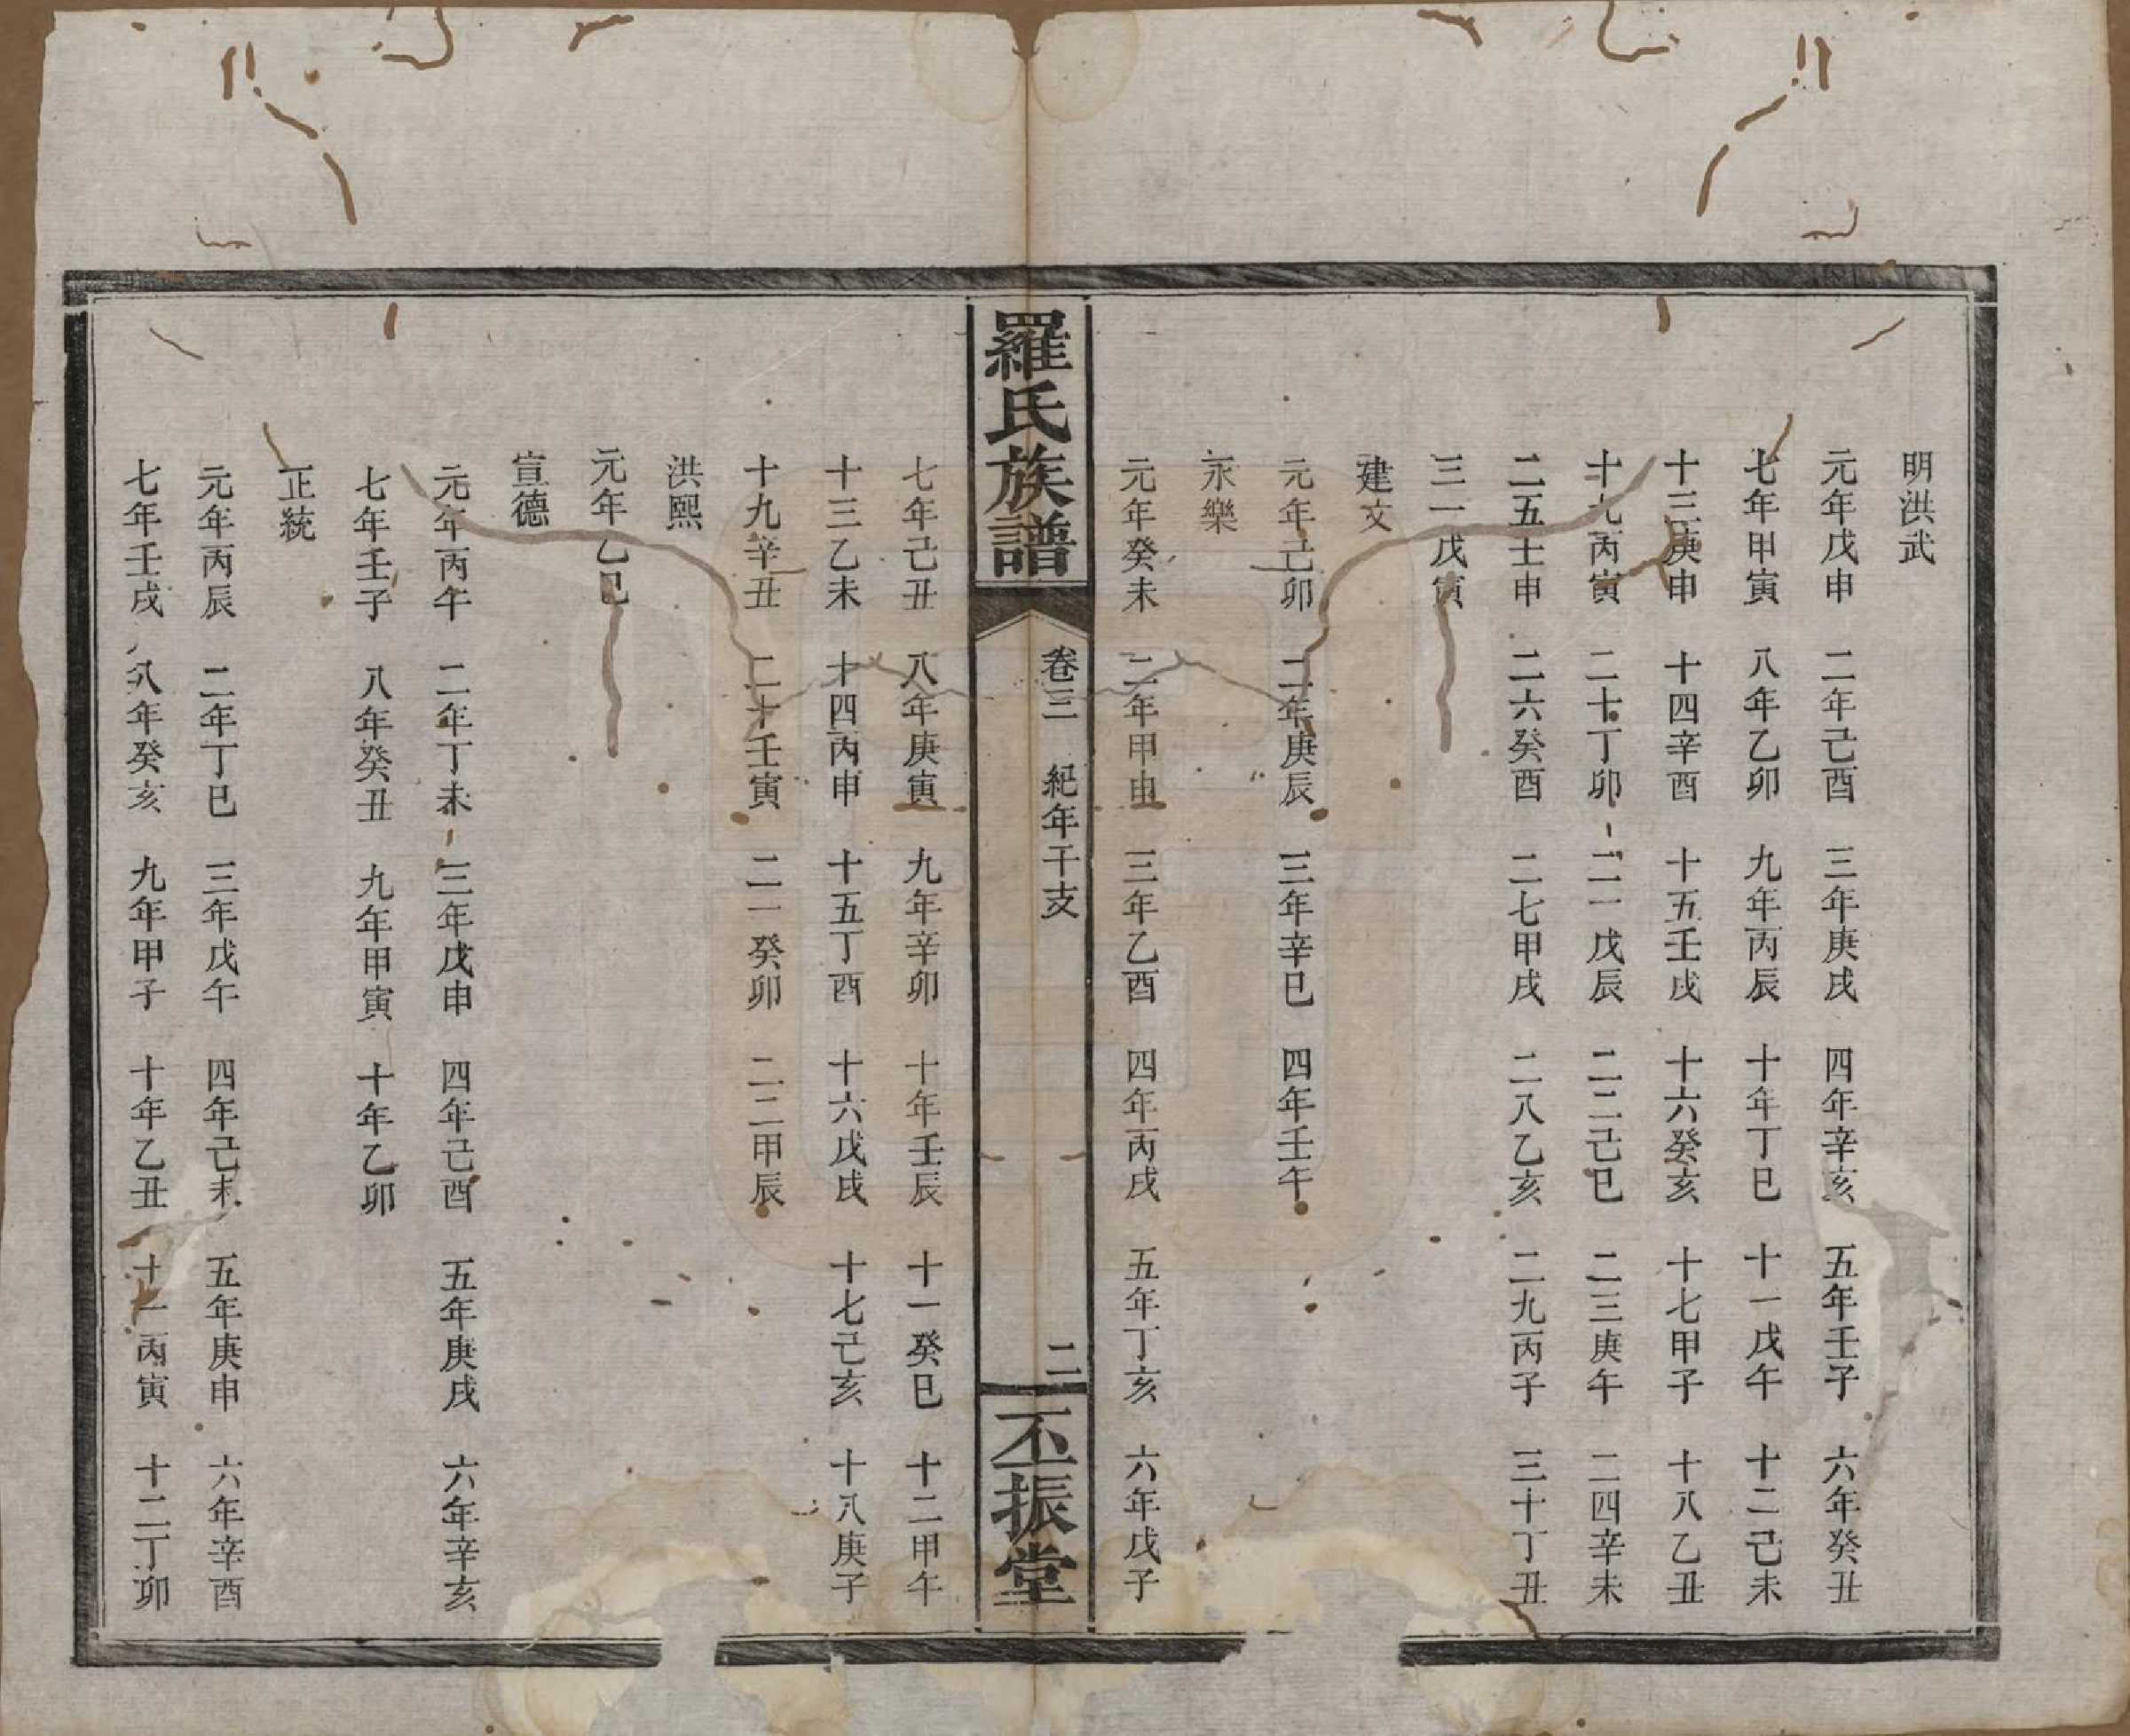 明洪武
元年戊申 二年己酉 三年庚戌 四年辛亥 五年壬子 六年癸丑
七年甲寅 八年乙卯 九年丙辰 十年丁巳 十一戊午 十二己未
十三庚申 十四辛酉 十五壬戌 十六癸亥 十七甲子 十八乙丑
十九丙寅 二十丁卯 二一戊辰 二二己巳 二三庚午 二四辛未
二五壬申 二六癸酉 二七甲戌 二八乙亥 二九丙子 三十丁丑
三一戊寅
建文
元年己卯 二年庚辰 三年辛巳 四年壬午
永樂
元年癸未 二年甲申 三年乙酉 四年丙戌 五年丁亥 六年戊子
羅氏族譜 卷三 紀年干支 二 丕振堂
七年己丑 八年庚寅 九年辛卯 十年壬辰 十一癸巳 十二甲午
十三乙未 十四丙申 十五丁酉 十六戊戌 十七己亥 十八庚子
十九辛丑 二十壬寅 二一癸卯 二二甲辰
洪熙
元年乙巳
宣德
元年丙午 二年丁未 三年戊申 四年己酉 五年庚戌 六年辛亥
七年壬子 八年癸丑 九年甲寅 十年乙卯
正統
元年丙辰 二年丁巳 三年戊午 四年己未 五年庚申 六年辛酉
七年壬戌 八年癸亥 九年甲子 十年乙丑 十一丙寅 十二丁卯